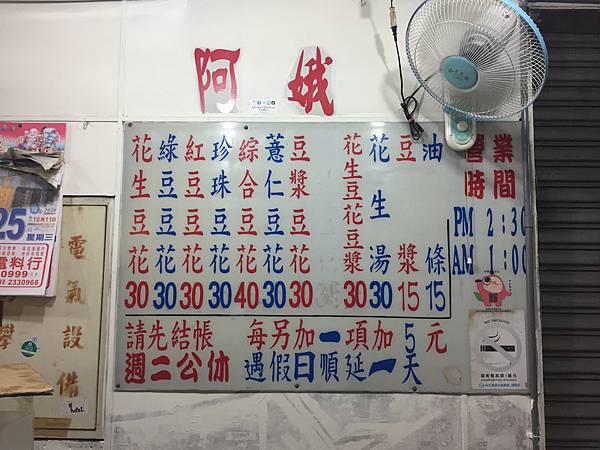 阿娥
花生豆花 30
綠豆豆花 30
紅豆豆花 30
珍珠豆花 30
綜合豆花 40
薏仁豆花 30
豆漿豆花 30
花生豆花豆漿 30
花生湯 30
豆漿 15
油條 15
請先結帳 每另加一項加5元
週二公休 遇假日順延一天
營業時間
PM 2:30
AM 1:00
25
10月11日
星期三
電料行
0999
2330966
電氣設備